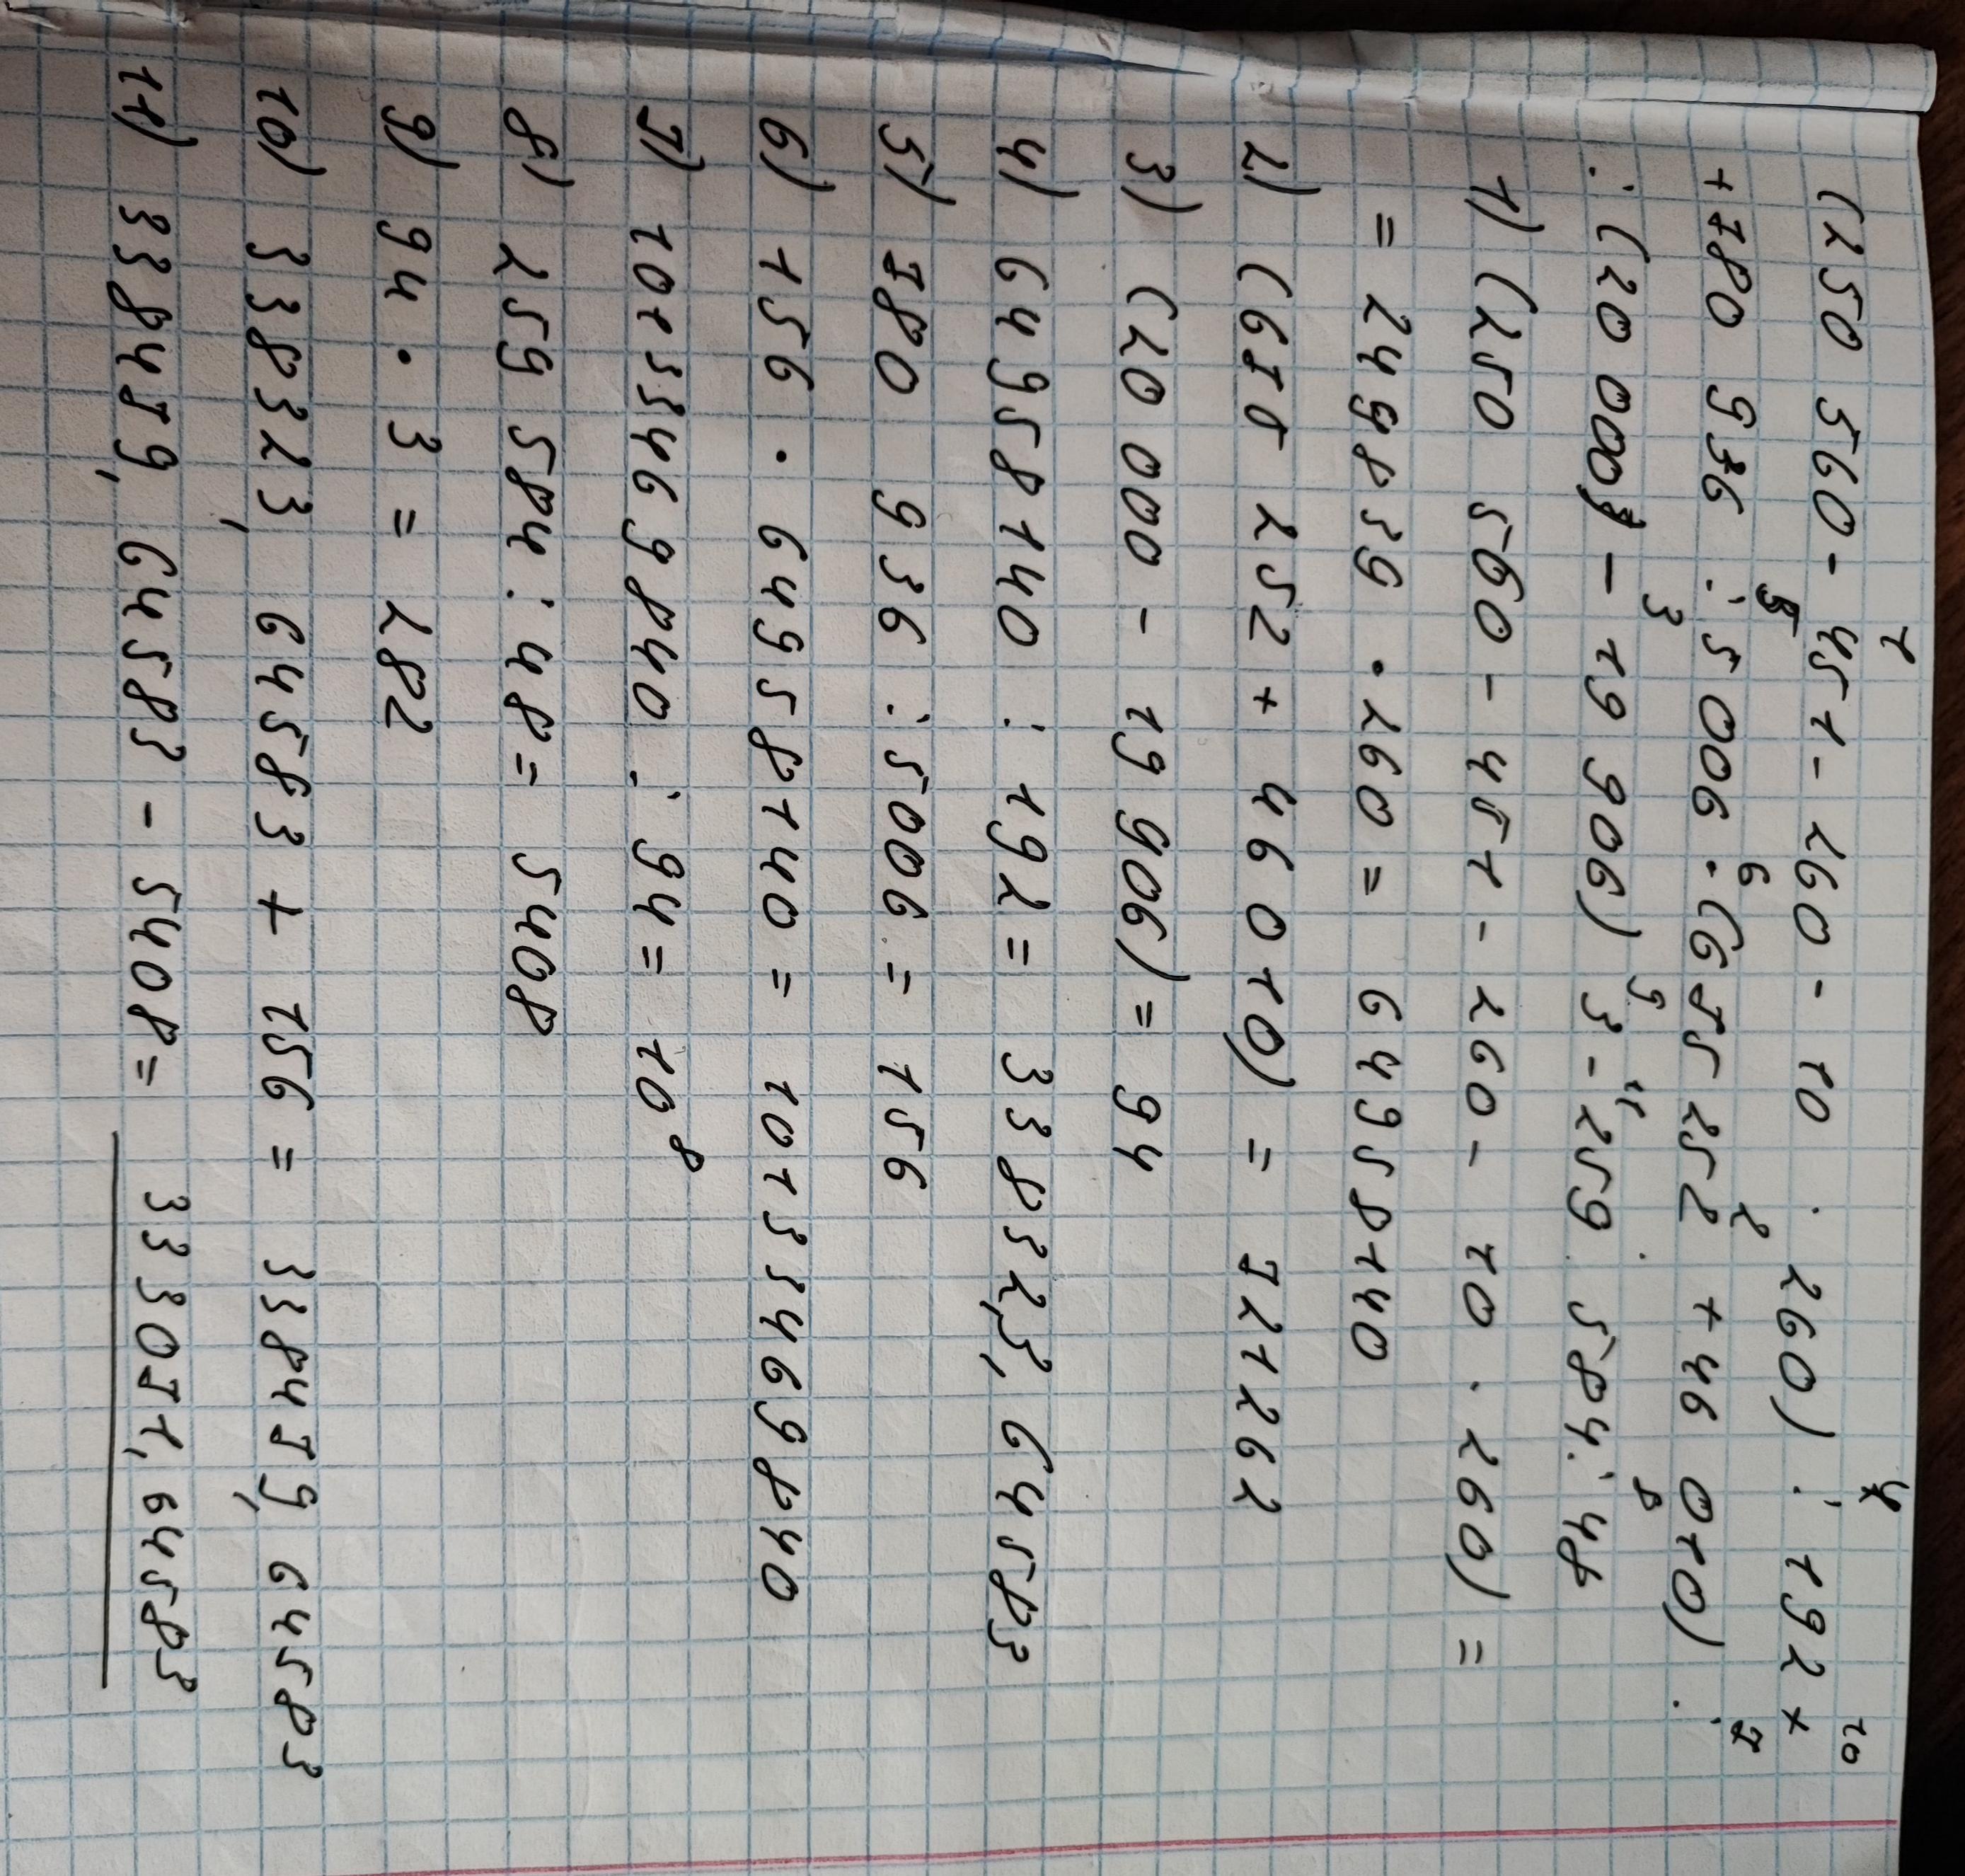 (250 560 - 451 - 260 - 10 · 260) : 192 +
+ 780 936 : 5 006 · (675 252 + 46 010) :
: (20 000) - 19 906) 3 - 259 584 : 48
1) (250 560 - 451 - 260 - 10 · 260) =
= 249839 · 260 = 64958140
2) (675 252 + 46 010) = 721262
3) (20 000 - 19 906) = 94
4) 64958140 : 192 = 338323,64583
5) 780 936 : 5006 = 156
6) 156 · 64958140 = 10133469840
7) 10133469840 : 94 = 10⁸
8) 259 584 : 48 = 5408
9) 94 · 3 = 282
10) 338323,64583 + 156 = 338479,64583
11) 338479,64583 - 5408 = 333071,64583